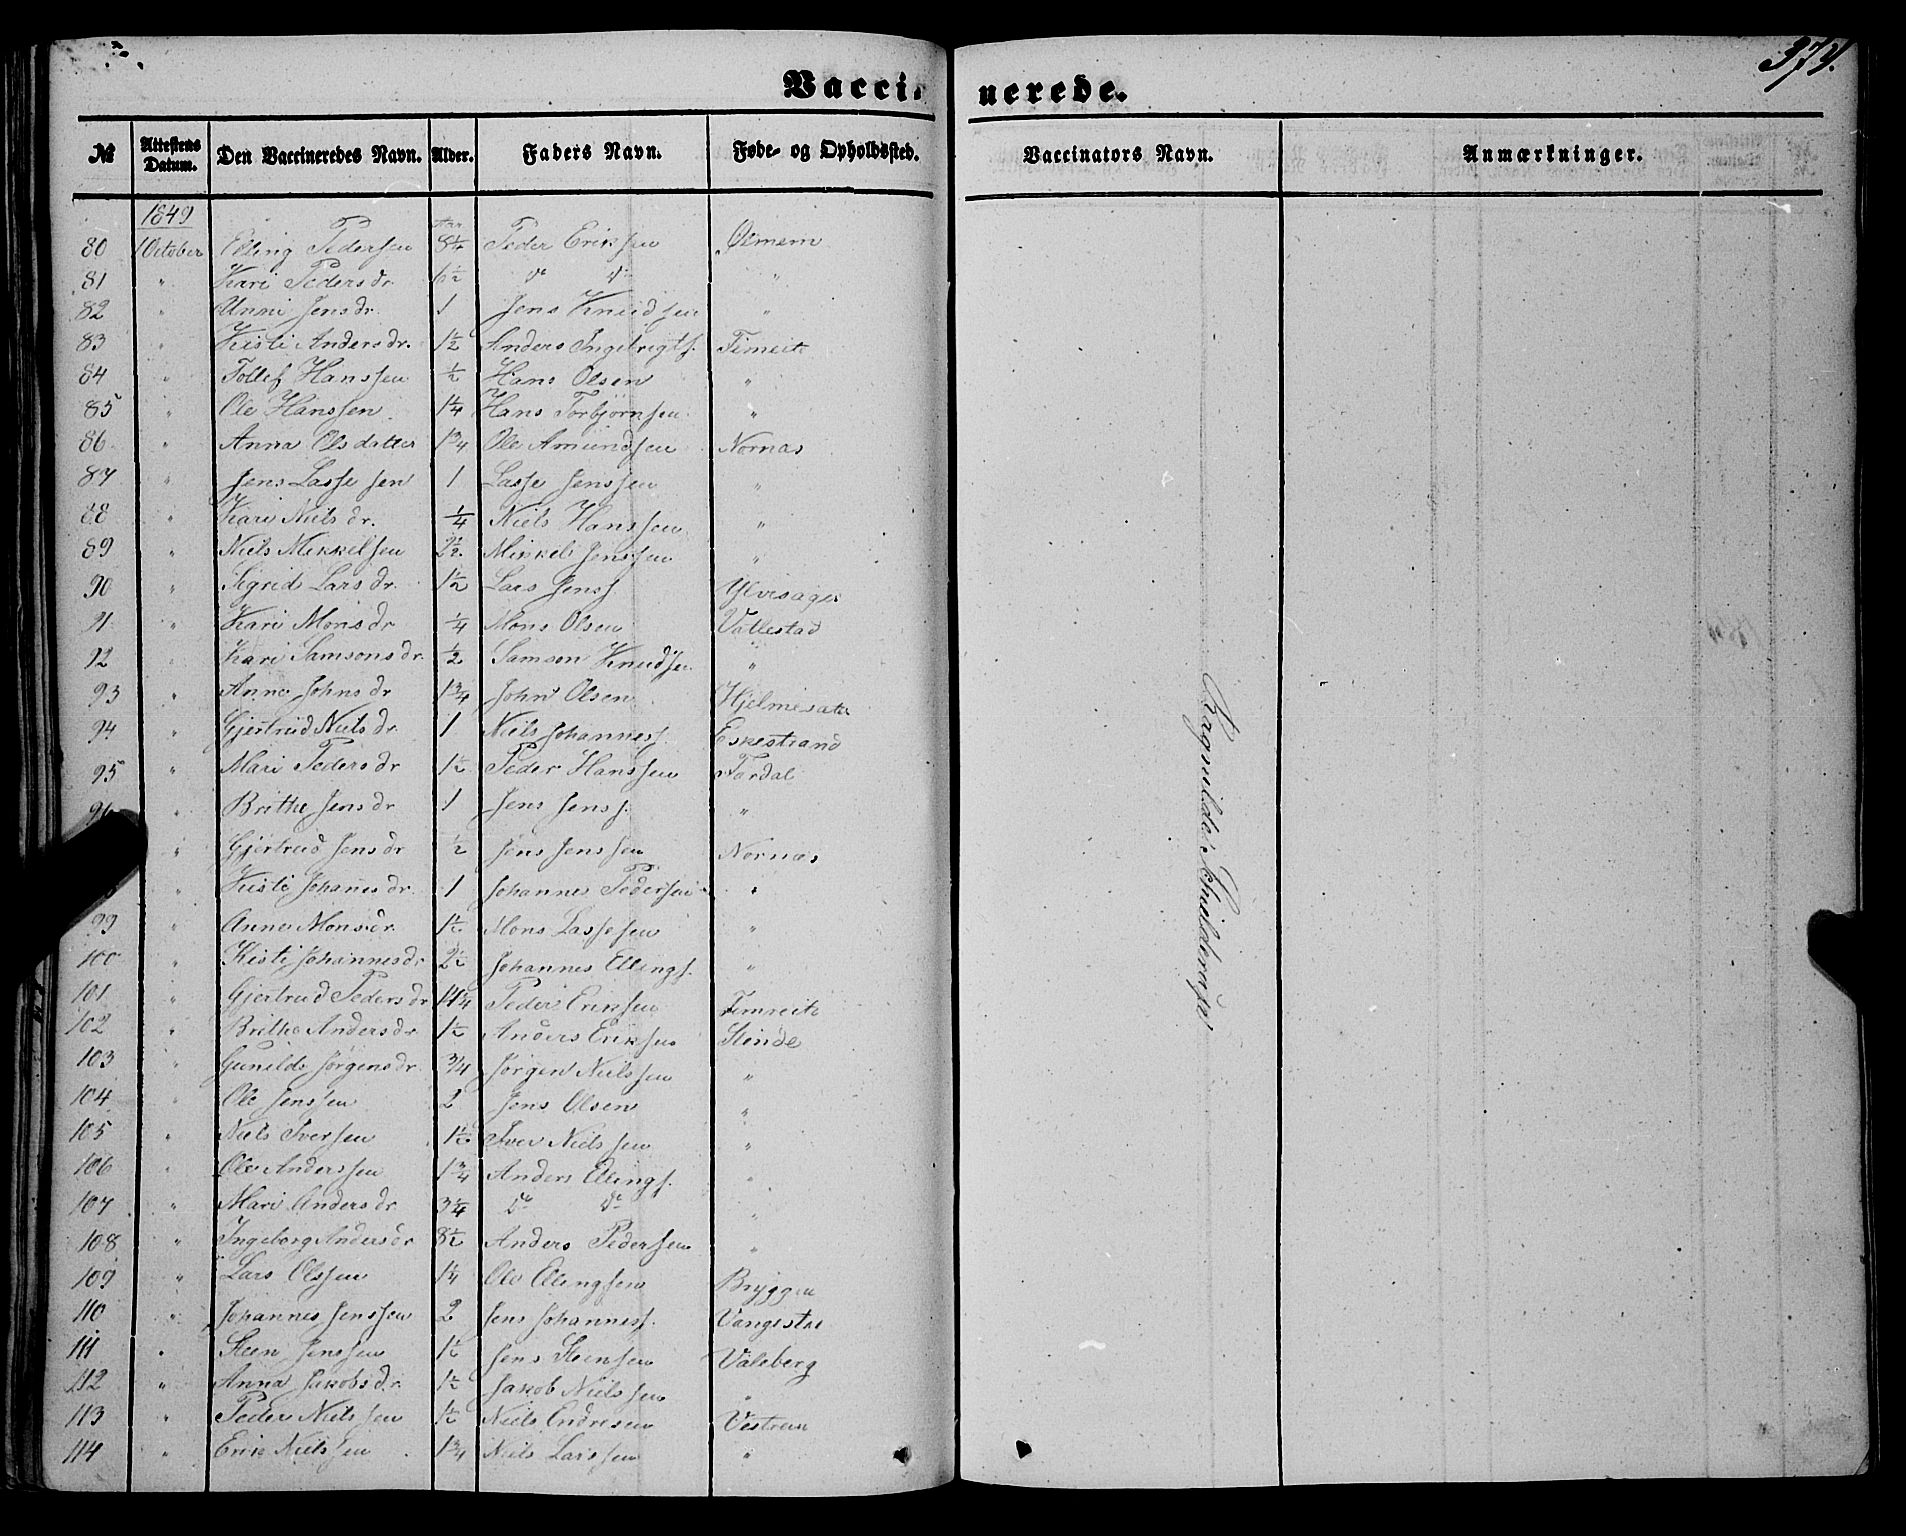 374.
Vacci- nerede.
№ Attestens Datum. Den Vaccineredes Navn. Alder. Faders Navn. Føde- og Opholdssted. Vaccinators Navn. Anmærkninger.
1849 Aar
80 1 October Elling Pedersen 8½ Peder Eriksen Ølmem
81 " Kari Pedersdr. 6½ do do "
82 " Unni Jensdr. 1 Jens Knudsen "
83 " Kisti Andersdr. 1½ Anders Ingebrigts. Timeit
84 " Tollef Hanssen ½ Hans Olsen "
85 " Ole Hanssen 1¼ Hans Torbjørnsen "
86 " Anna Olsdatter 1¾ Ole Amundsen Nornæs
87 " Jens Lassesen 1 Lasse Jenssen "
88 " Kari Nielsdr. ¼ Niels Hanssen "
89 " Niels Mikkelsen 2½ Mikkel Jenssen "
90 " Sigrid Larsdr. 1½ Lars Jenss. Ylvisager
91 " Kari Monsdr ¼ Mons Olsen Vallestad
92 " Kari Samsonsdr. ½ Samson Knudsen "
93 " Anna Johnsdr 1¾ John Olsen Hjelmesæte
94 " Gjertrud Nielsdr 1 Niels Johanness. Eskestrand
95 " Mari Pedersdr 1½ Peder Hanssen Nordal
96 " Brithe Jensdr 1 Jens Jenss. "
" Gjertrud Jensdr ½ Jens Jenssen Nornæs
" Kisti Johanesdr. 1 Johannes Pedersen "
99 " Anne Monsdr. 1½ Mons Lassesen "
100 " Kisti Johannesdr 2½ Johannes Ellings. "
101 " Gjertrud Pedersdr 14¾ Peder Eriksen Timreite
102 " Brithe Andersdr 1½ Anders Eriksen Slinde
103 " Gunilde Jørgensdr. ¾ Jørgen Nielssen "
104 Ole Jenssen 2 Jens Olsen "
105 " Niels Iversen 1½ Iver Nielssen "
106 " Ole Anderssen 1¾ Anders Ellings. "
107 " Mari Andersdr 3¼ do do "
108 " Ingeborg Andersdr 8½ Anders Pedersen "
109 " Lars Olssen 1¼ Ole Ellingsen Bryggen
110 " Johannes Jenssen 2 Jens Johanness. Vangestad
111 " Steen Jenssen 1½ Jens Steensen Valeberg
112 " Anna Jakobsdr. 1½ Jakob Nielssen "
113 " Peder Nielssen ½ Niels Endresen Vestrem
114 " Erik Nielssen 1¾ Niels Larssen "
Ragnilde